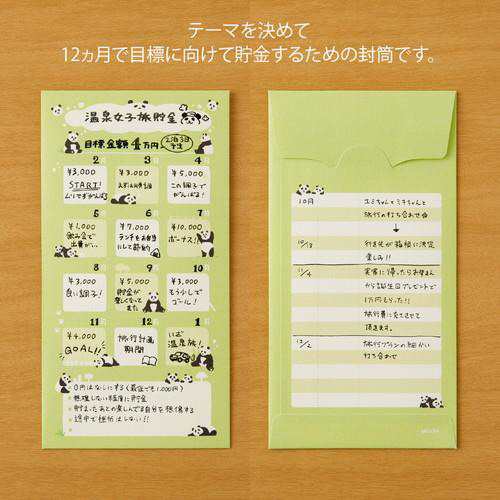 テーマを決めて
12ヵ月で目標に向けて貯金するための封筒です。
温泉女子旅貯金
目標金額4万円
2泊3日予定
2月
¥3,000
START!
ムリせずがんばる
3月
¥3,000
4月
¥5,000
この調子で
がんばる!
5月
¥1,000
飲み会で
出費が…
6月
¥7,000
ランチをお弁当
にして節約
7月
¥10,000
ボーナス!!
8月
¥3,000
良い調子!
9月
¥5,000
貯金が
楽しくなって
きた
10月
¥3,000
もう少しで
ゴール!
11月
¥4,000
GOAL!!
12月
旅行計画
期間
1月
いざ
温泉旅!
0円はなしにする(最低でも1,000円)
無理しない程度に貯金
貯まったあとの楽しんでる自分を想像する
途中で挫折はしない!!
10月
ユミちゃんとミキちゃんと
旅行の打ち合わせ
↓
10/13
行き先が箱根に決定
楽しみ!!
11/4
実家に帰ったらお母さん
から誕生日プレゼントで
1万円もらった!!
旅行費に充てさせて
頂きます。
12/2
旅行プランの細かい
打ち合わせ
MIDORI